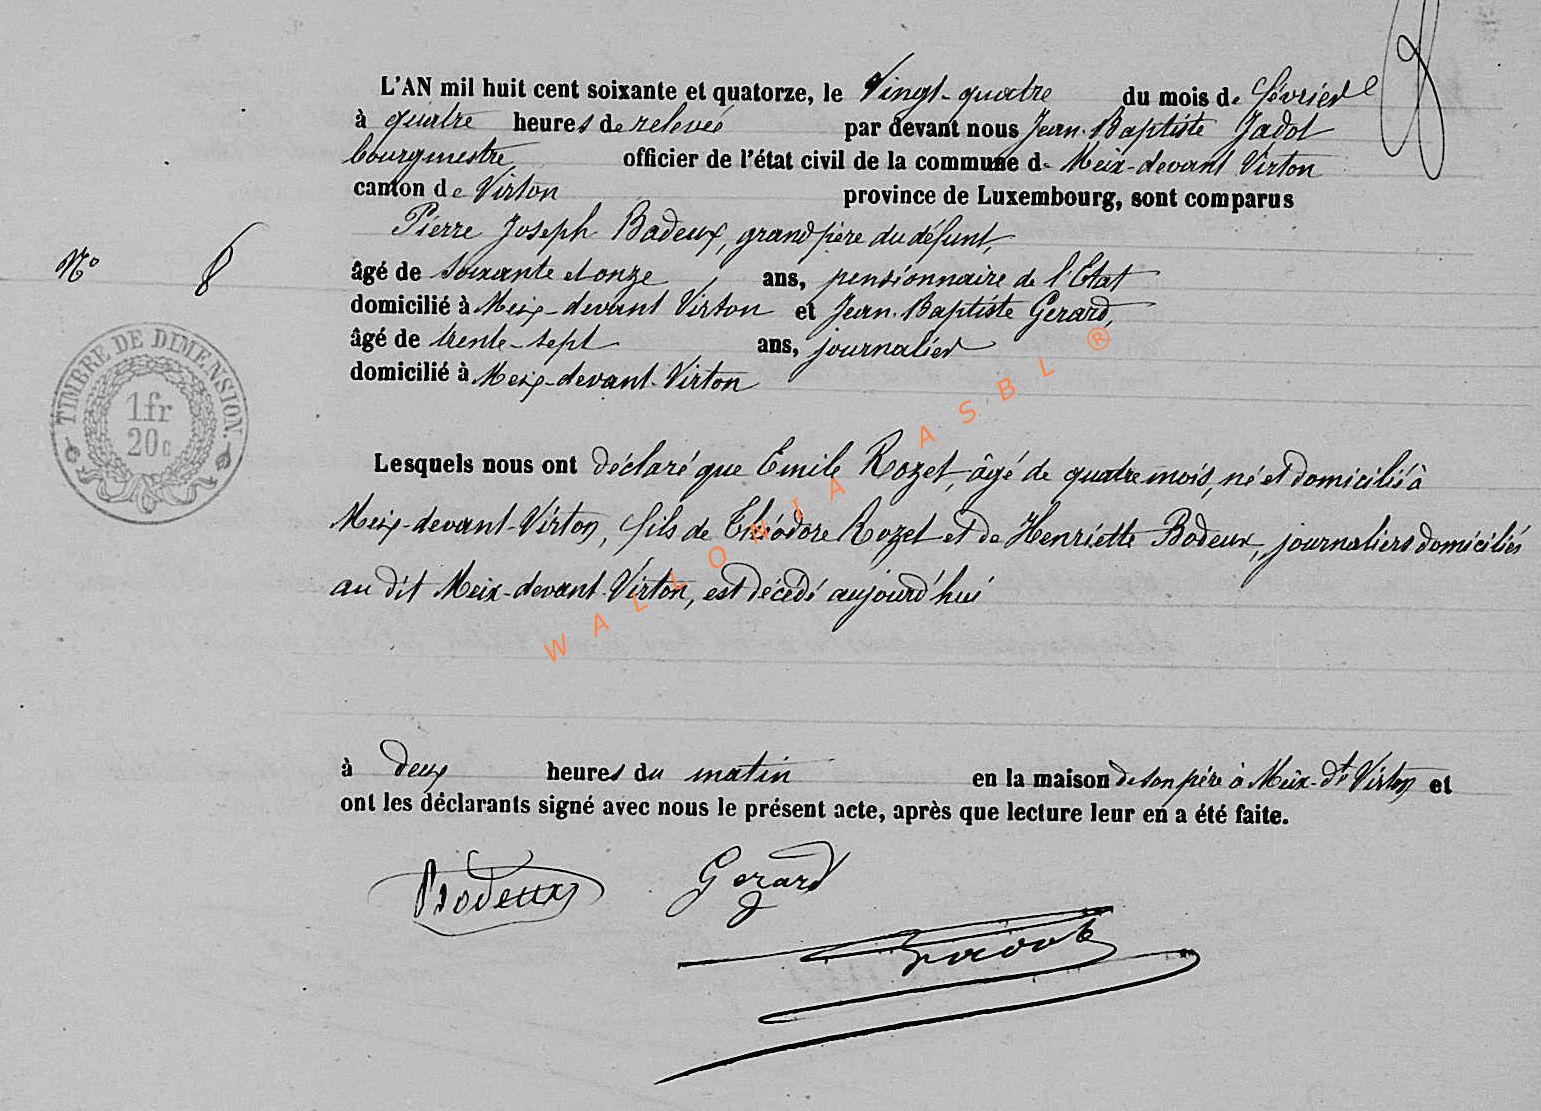 L'AN mil huit cent soixante et quatorze, le Vingt-quatre du mois de février
à quatre heures de relevée par devant nous Jean-Baptiste Jadot
bourgmestre officier de l'état civil de la commune de Meix-devant Virton
canton de Virton province de Luxembourg, sont comparus
Pierre Joseph Bodeux, grand père du défunt,
N° 8
âgé de soixante et onze ans, pensionnaire de l'Etat
domicilié à Meix-devant Virton et Jean-Baptiste Gerard,
âgé de trente-sept ans, journalier
domicilié à Meix-devant-Virton
TIMBRE DE DIMENSION.
1fr
20c
Lesquels nous ont déclaré que Emile Rozet, âgé de quatre mois, né et domicilié à
Meix-devant-Virton, fils de Théodore Rozet et de Henriette Bodeux, journaliers domiciliés
au dit Meix-devant-Virton, est décédé aujourd'hui
WALLONIA ASBL ®
à deux heures du matin en la maison de son père à Meix-dt Virton et
ont les déclarants signé avec nous le présent acte, après que lecture leur en a été faite.
Bodeux Gerard
Jadot